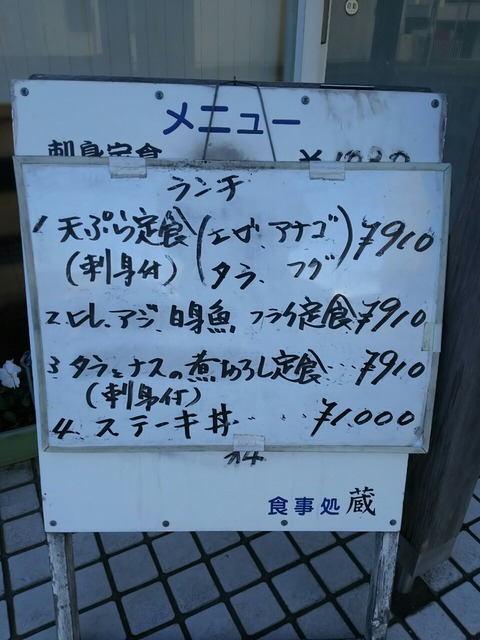 メニュー
刺身定食
ランチ
1 天ぷら定食 (エビ、アナゴ ¥910
(刺身付) タラ、フグ)
2. ヒレ、アジ、白身魚、フライ定食 ¥910
3. タラとナスの煮おろし定食… ¥910
(刺身付)
4. ステーキ丼…… ¥1.000
食事処 蔵